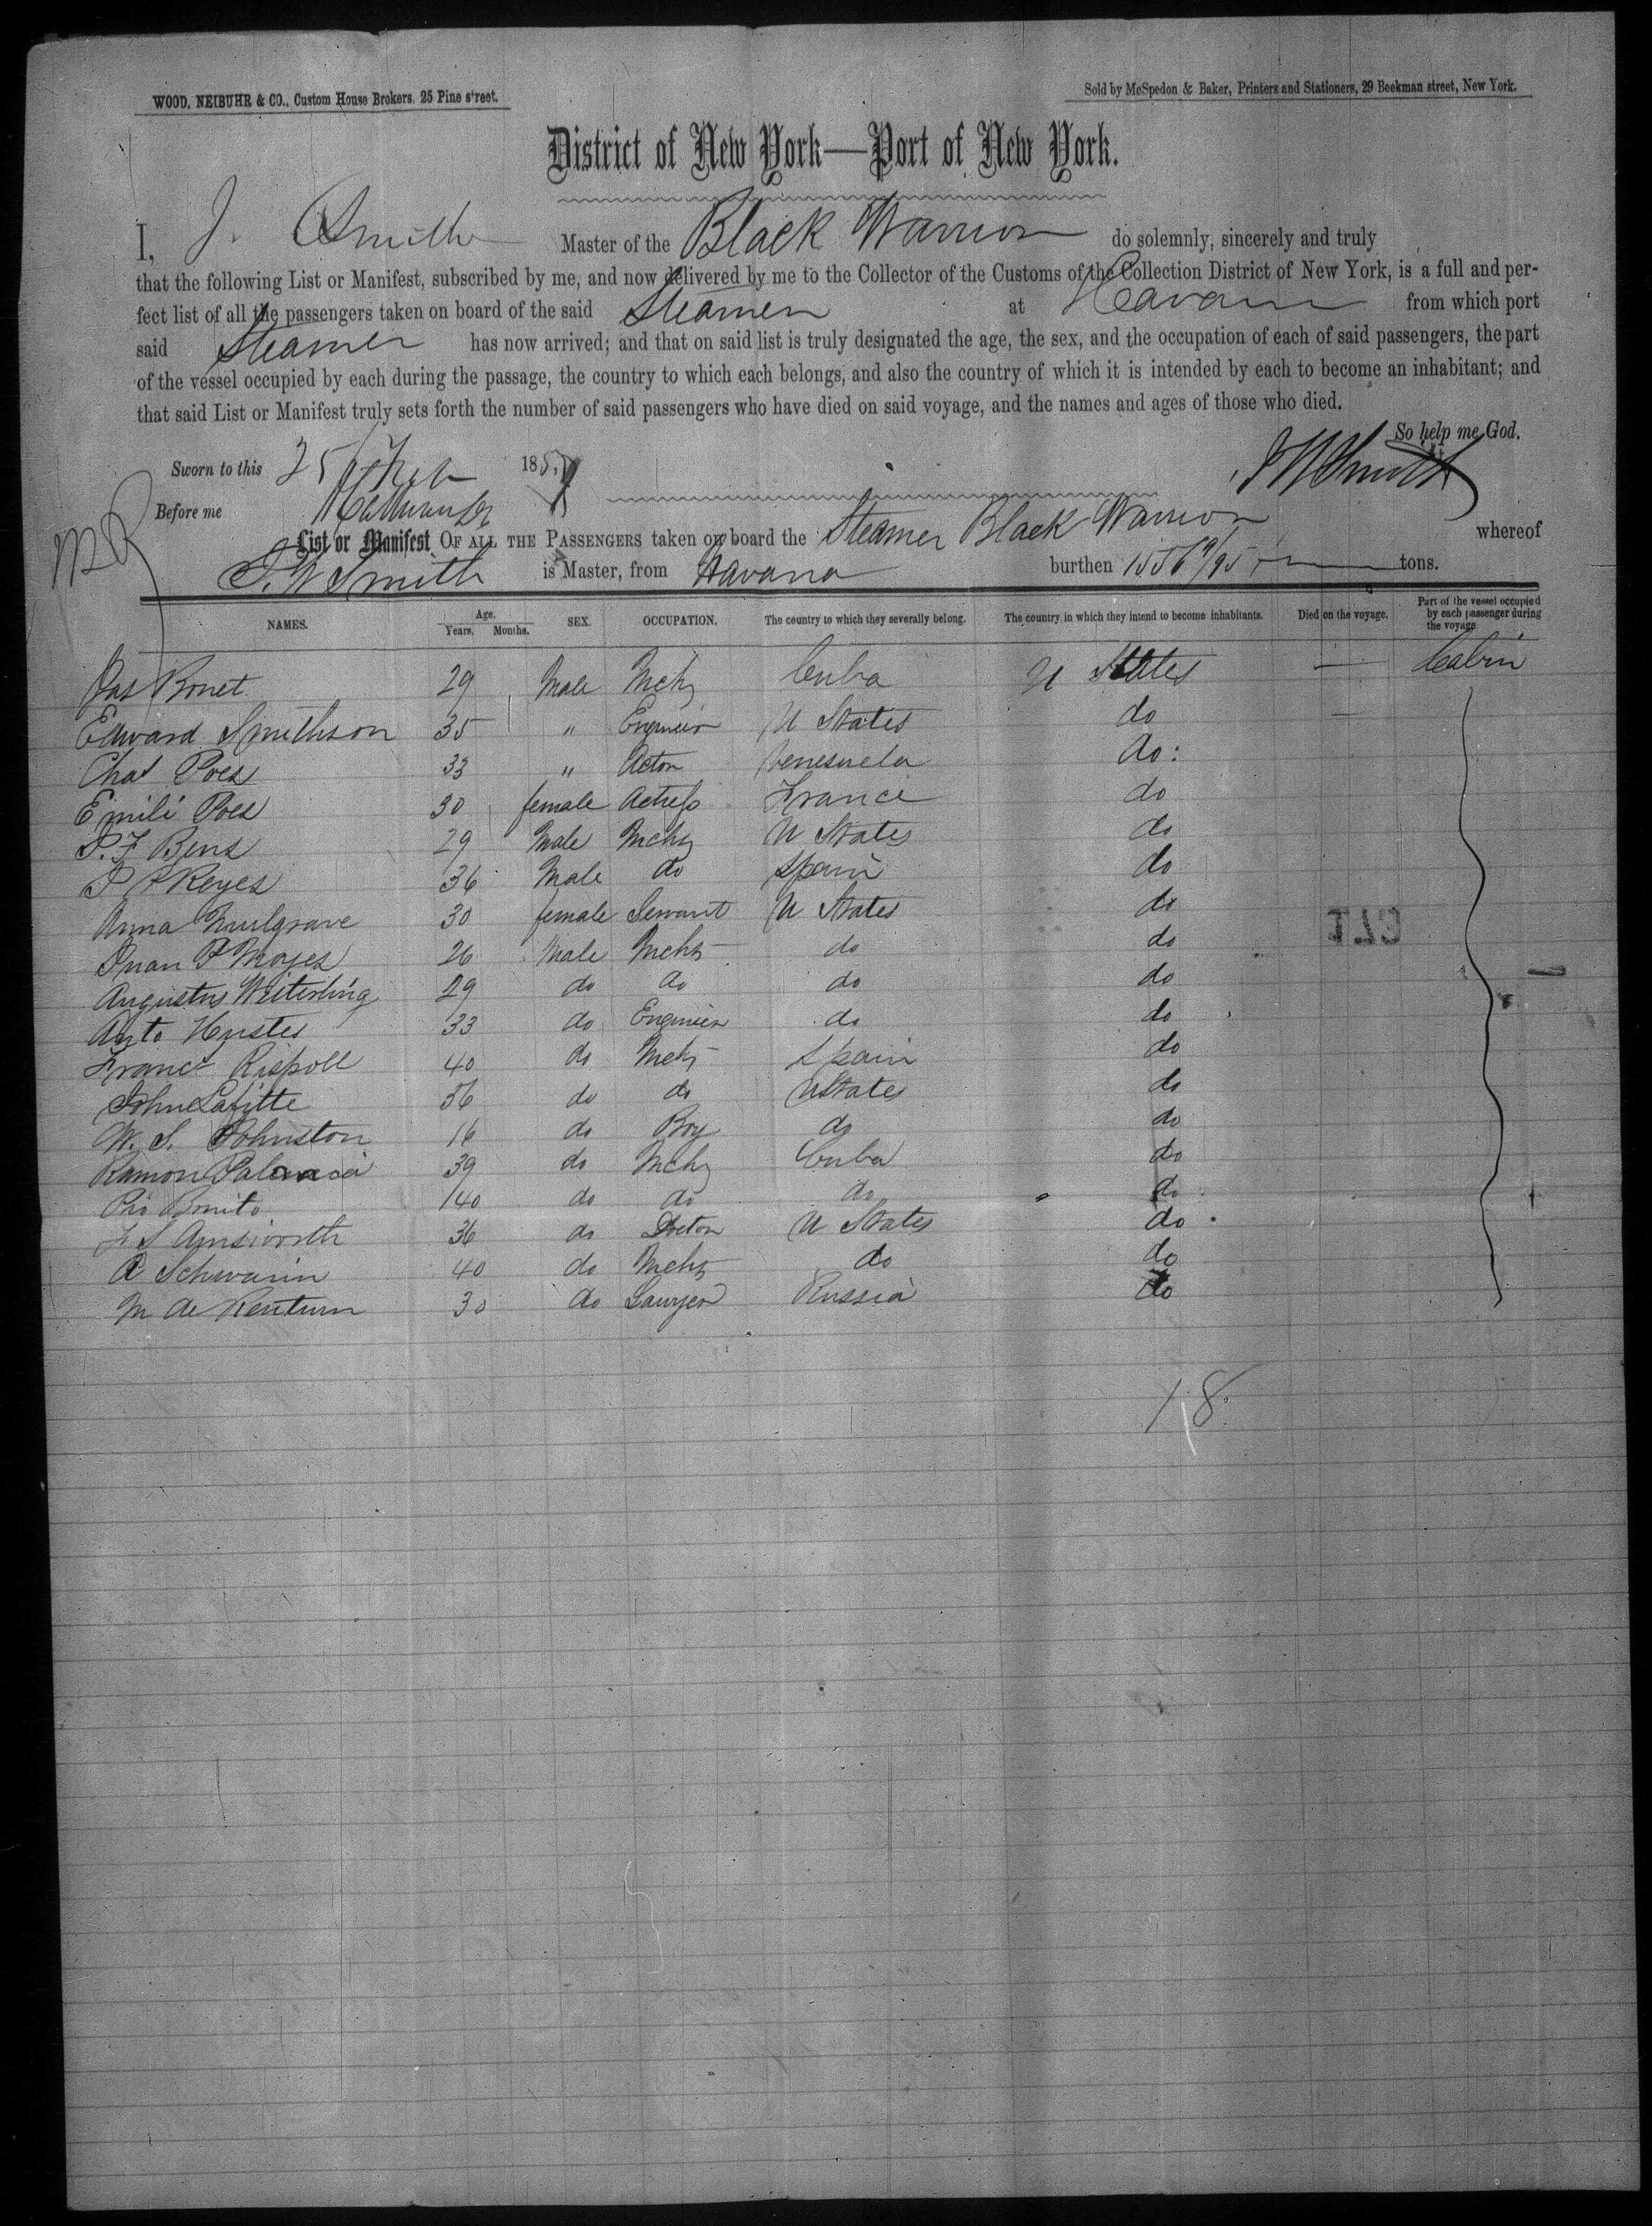 WOOD, NEIBUHR & CO., Custom House Brokers. 25 Pine street.
Sold by McSpedon & Baker, Printers and Stationers, 29 Beekman street, New York.
District of New York—Port of New York.
I, J. Smith Master of the Black Warrior do solemnly, sincerely and truly
that the following List or Manifest, subscribed by me, and now delivered by me to the Collector of the Customs of the Collection District of New York, is a full and per-
fect list of all the passengers taken on board of the said Steamer at Havana from which port
said Steamer has now arrived; and that on said list is truly designated the age, the sex, and the occupation of each of said passengers, the part
of the vessel occupied by each during the passage, the country to which each belongs, and also the country of which it is intended by each to become an inhabitant; and
that said List or Manifest truly sets forth the number of said passengers who have died on said voyage, and the names and ages of those who died.
So help me God.
Sworn to this 25 Feb 185 J W Smith
Before me
List or Manifest OF ALL THE PASSENGERS taken on board the Steamer Black Warrior whereof
J. W Smith is Master, from Havana burthen 1556 9/95 tons.
NAMES. Age. Years. Months. SEX. OCCUPATION. The country to which they severally belong. The country in which they intend to become inhabitants. Died on the voyage. Part of the vessel occupied by each passenger during the voyage
Jas Bonet 29 Male Mcht Cuba U States — Cabin
Edward Smithson 35 " Engineer U States do —
Chas Poes 33 " Actor Venesuela do
Emili Poes 30 female Actress France do
P. F Bens 29 Male Mcht U States do
P F Reyes 36 Male do Spain do
Anna Mulgrave 30 female Servant U States do
Juan F Moyes 26 Male Mcht do do
Augustus Witterling 29 do do do do
33 do Engineer do do
Franct Rispoll 40 do Mcht Spain do
John Lafitte 36 do do U States do
W. S. Johnston 16 do Boy do do
Ramon Palancia 39 do Mcht Cuba do
Pio Bonito 40 do do do do
S Ainsworth 36 do Doctor U States do
A Schwarin 40 do Mcht do do
M de Rentum 30 do Lawyer Russia do
18